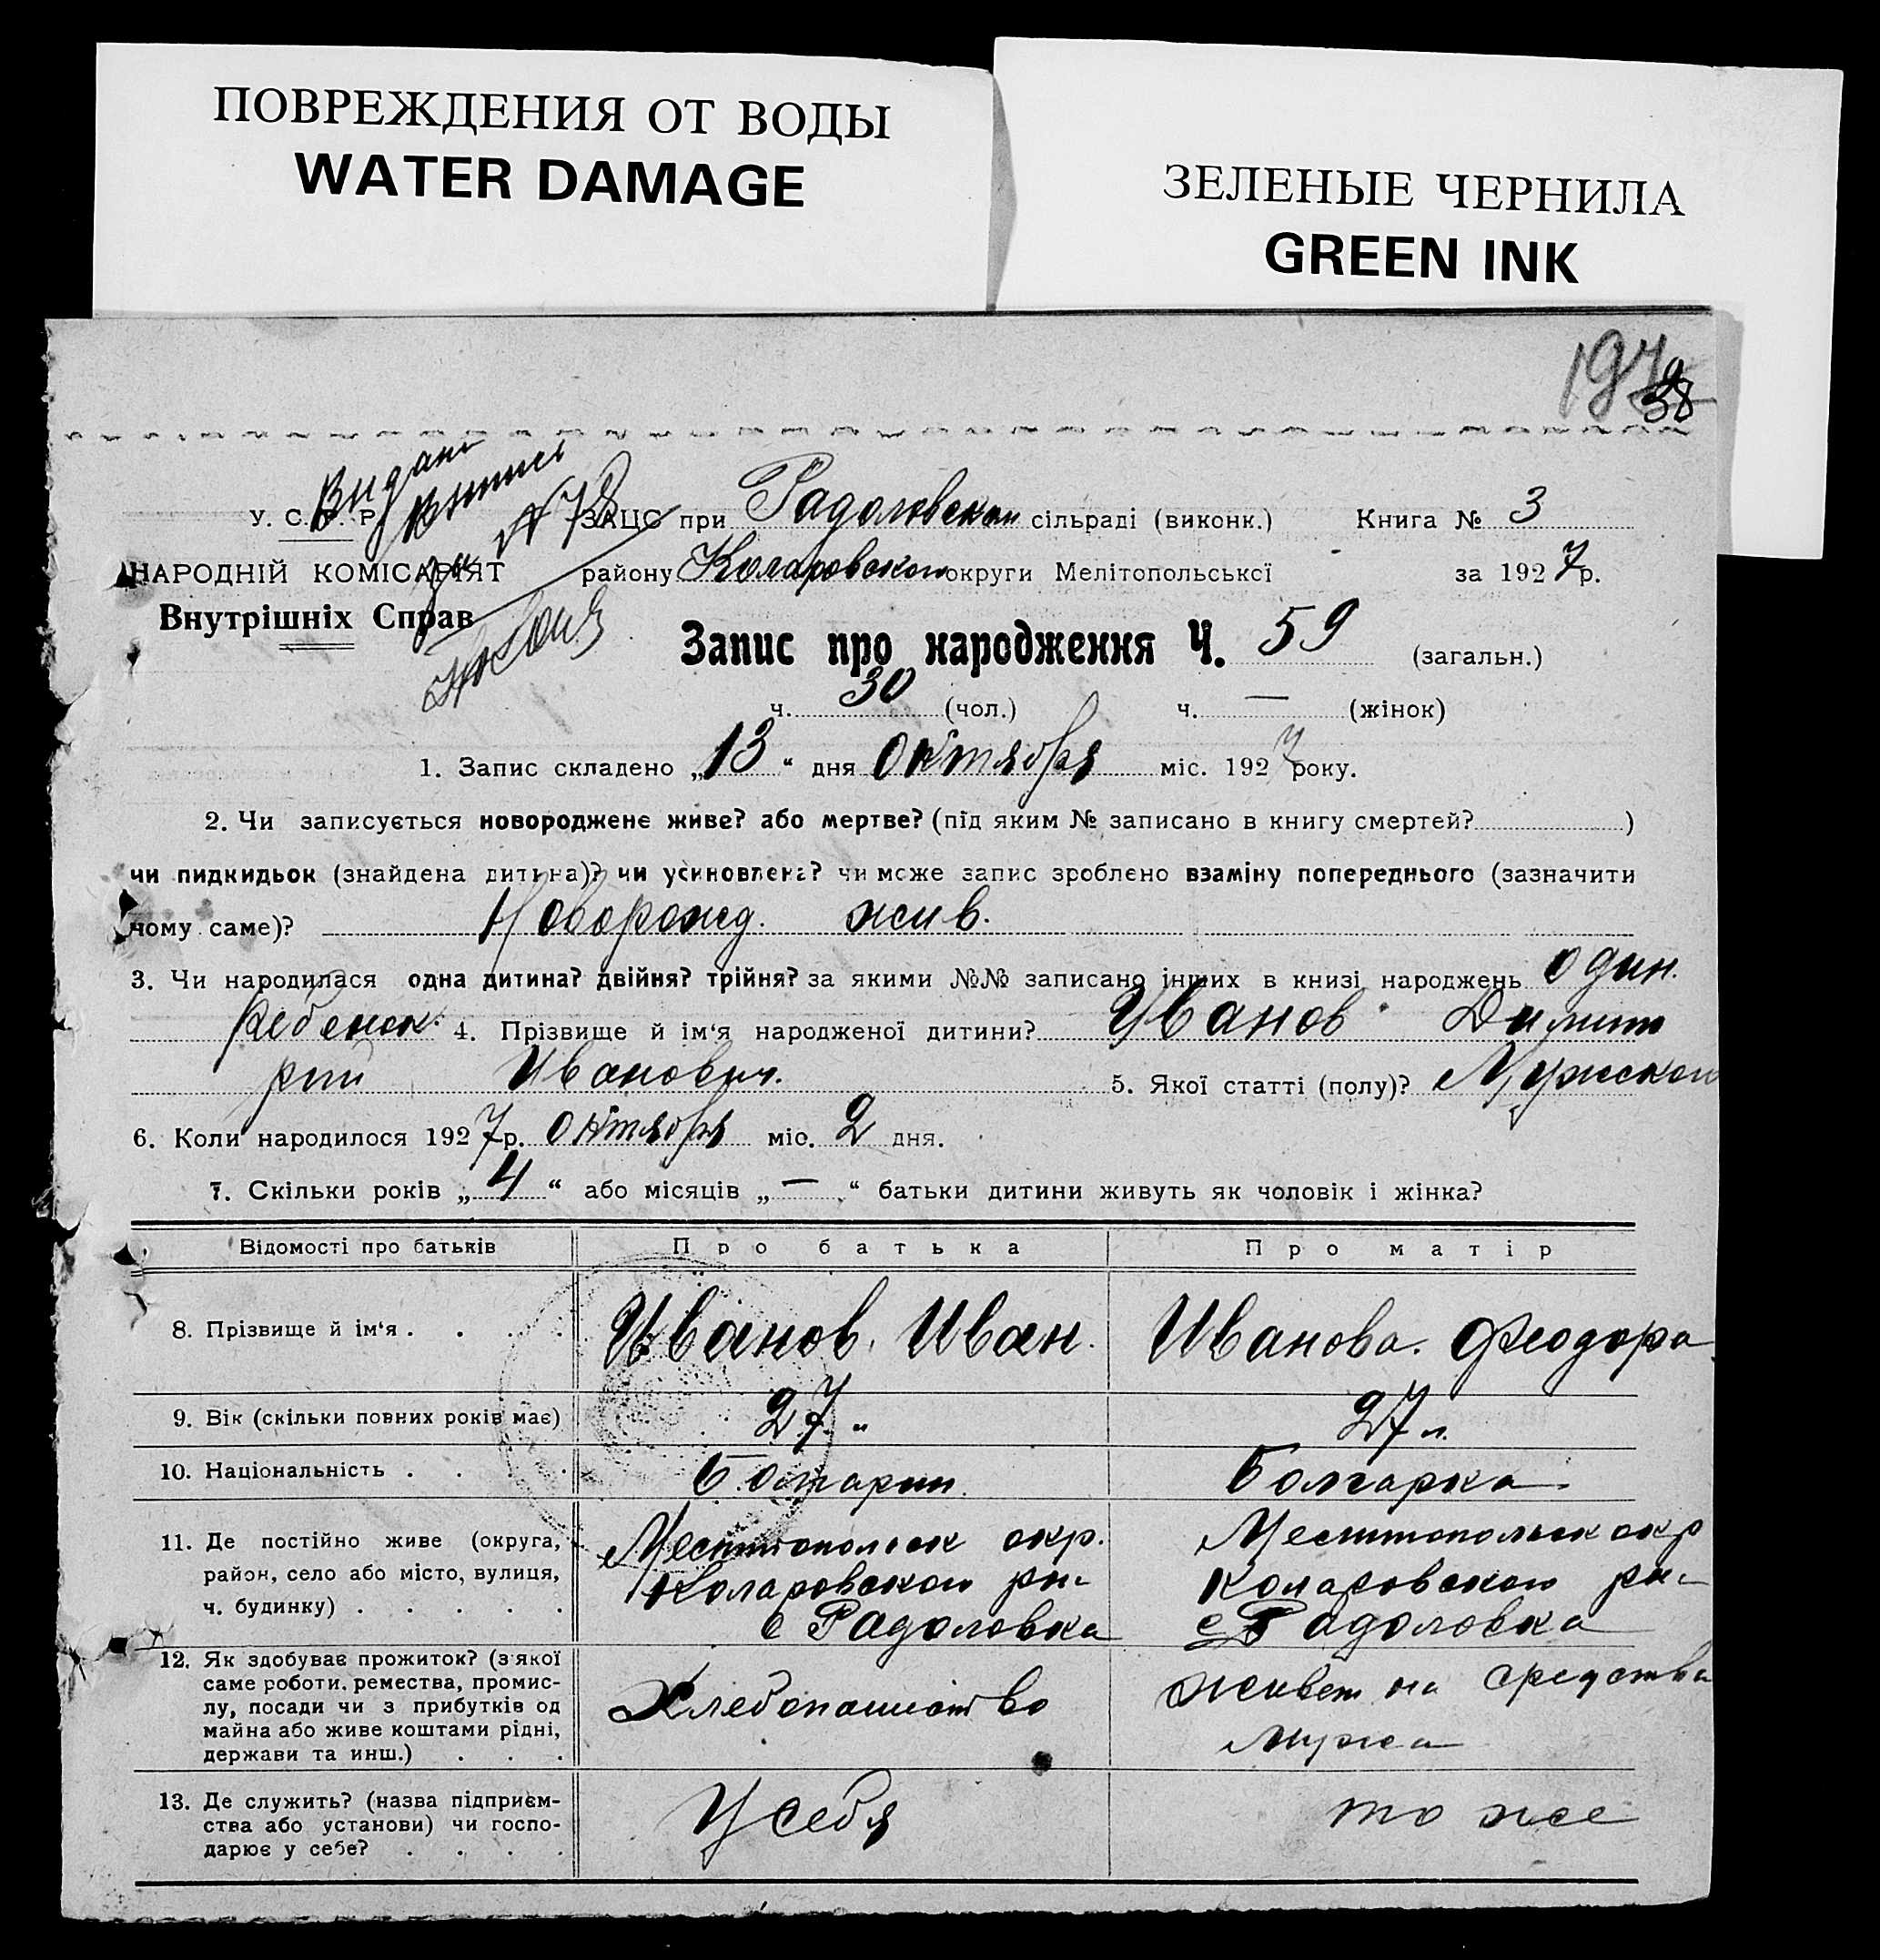 ПОВРЕЖДЕНИЯ ОТ ВОДЫ
WATER DAMAGE
ЗЕЛЕНЫЕ ЧЕРНИЛА
GREEN INK
38
Видано
У. С. Р. Р. ЗАЦС при Радоловском сільраді (виконк.) Книга № 3
НАРОДНІЙ КОМІСАРІЯТ району Коларовском округи Мелітопольської за 1927 р.
Внутрішніх Справ
Запис про народження Ч. 59 (загальн.)
ч. 30 (чол.) ч. — (жінок)
1. Запис складено „13“ дня Октября міс. 1927 року.
2. Чи записується новороджене живе? або мертве? (під яким № записано в книгу смертей? )
чи пидкидьок (знайдена дитина)? чи усиновлена? чи може запис зроблено взаміну попереднього (зазначити
чому саме)? Новорожд. жив.
3. Чи народилася одна дитина? двійня? трійня? за якими №№ записано інших в книзі народжень один.
ребенок. 4. Прізвище й ім‘я народженої дитини? Иванов Димит
рий Иванович. 5. Якої статті (полу)? Мужской
6. Коли народилося 1927 р. Октября міс. 2 дня.
7. Скільки років „4“ або місяців „—“ батьки дитини живуть як чоловік і жінка?
Відомості про батьків Про батька Про матір
8. Прізвище й ім‘я . . . . Иванов Иван. Иванова. Феодора
9. Вік (скільки повних років має) 27 „ 27 л.
10. Національність . . . . Болгарин. Болгарка.
11. Де постійно живе (округа, Мелитопольск окр. Мелитопольск окр
район, село або місто, вулиця, Коларовском рн- Коларовском рн-
ч. будинку) . . . . . с Радоловка с Радоловка
12. Як здобуває прожиток? (з якої
саме роботи, ремества, промис-
лу, посади чи з прибутків од Хлебопашество живет на средства
майна або живе коштами рідні, мужа
держави та инш.) . . .
13. Де служить? (назва підприєм-
ства або установи) чи госпо- У себя то же
дарює у себе? . . . .